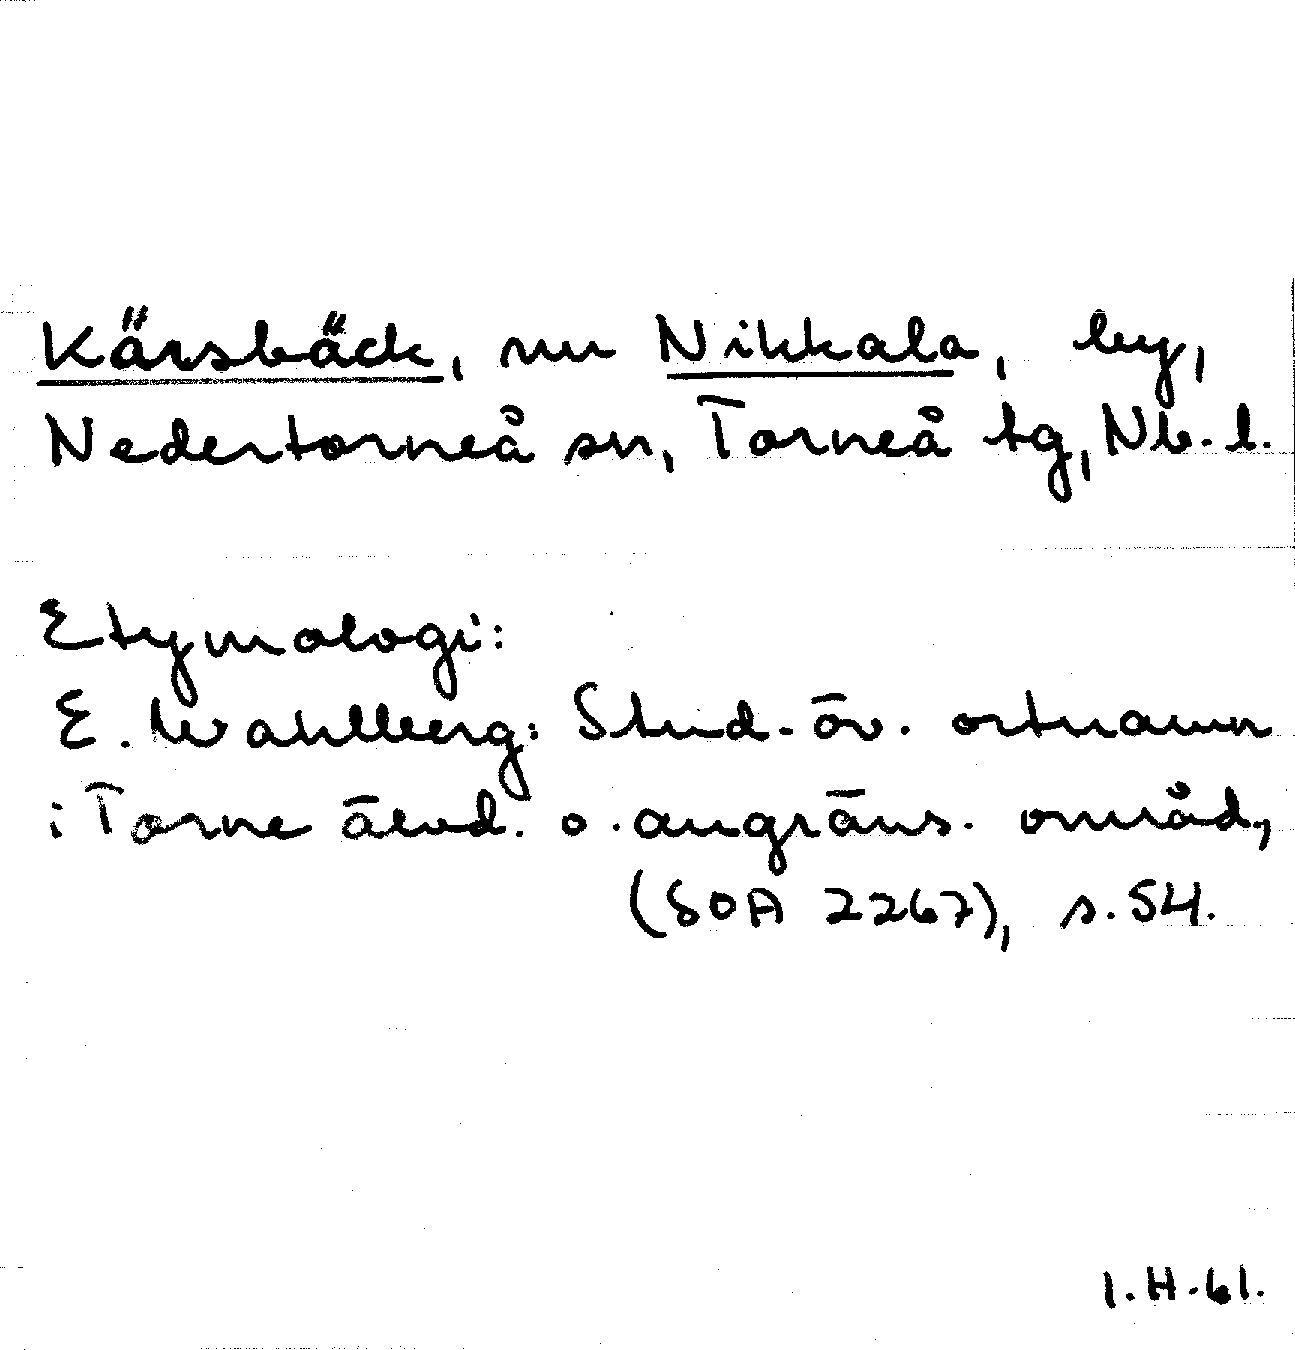 Kärsbäck, nu Nikkala, by,
Nedertorneå sn, Torneå tg, Nb. l.
Etymologi:
E. Wahlberg: Stud. öv. ortnamn
i Torne älvd. o. angräns. områd,
(SOA 2267), s. 54.
I.H.61.